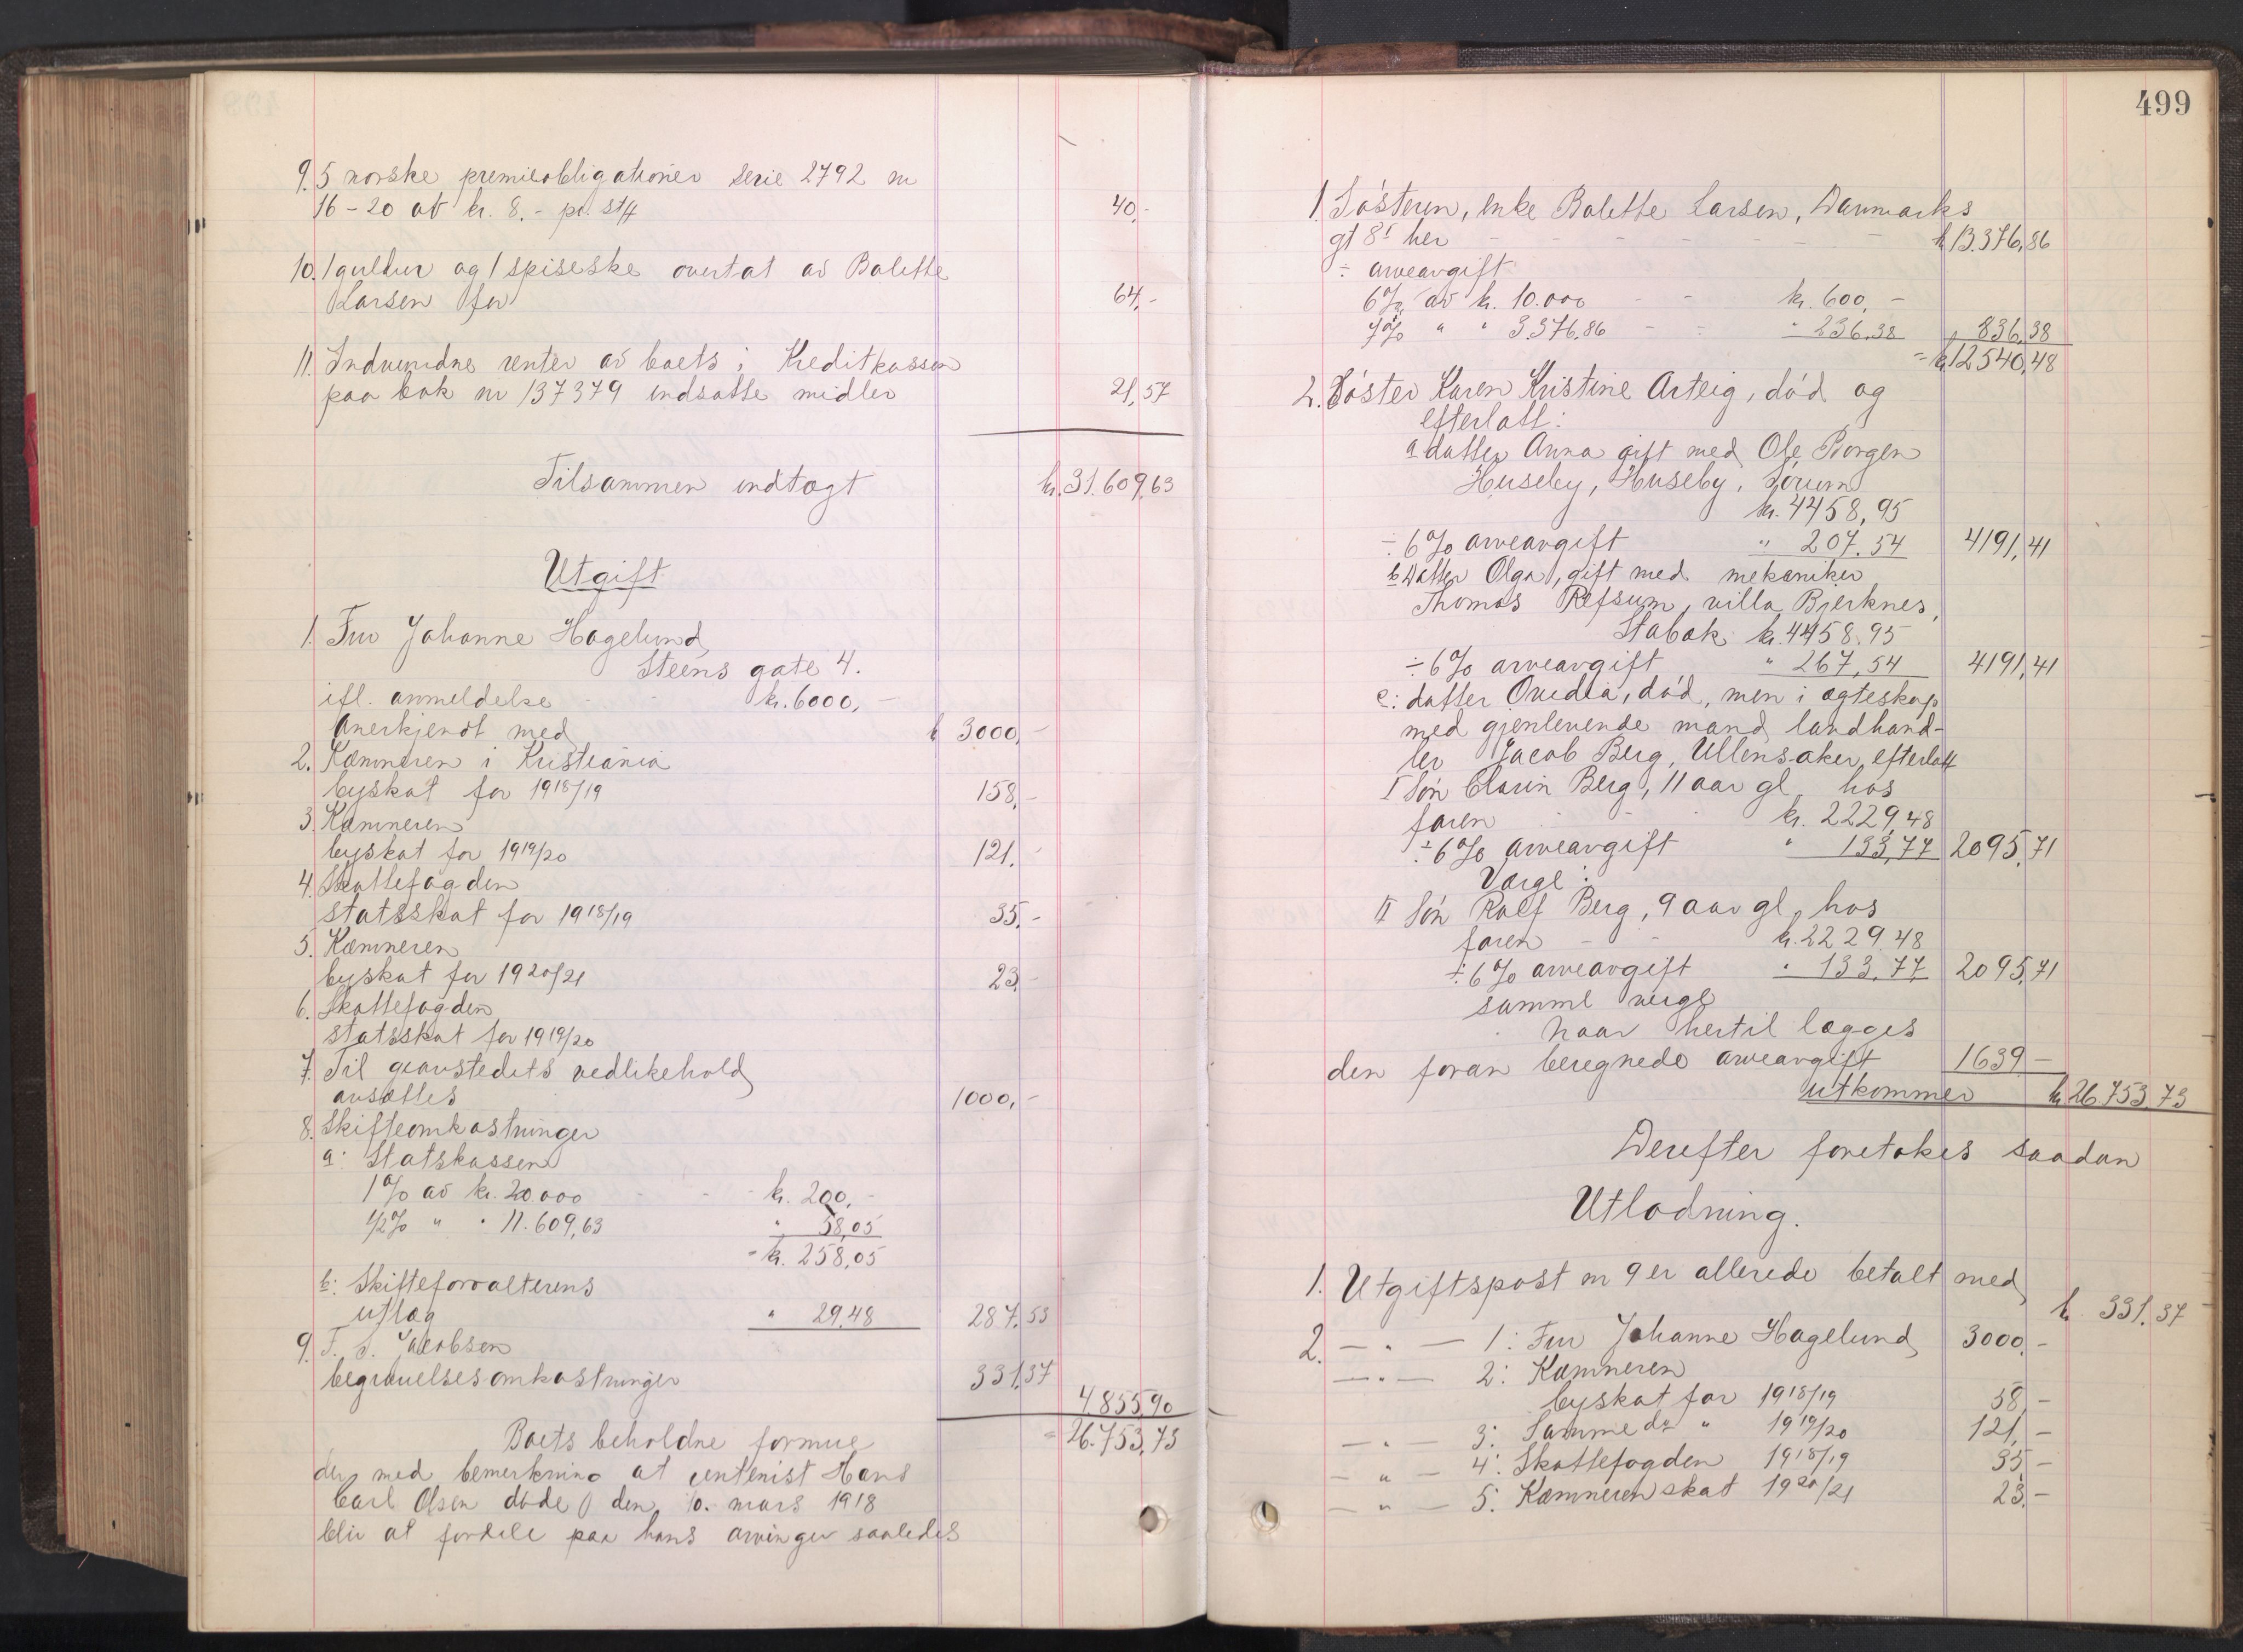 9. 5 norske premieobligationer serie 2792 nr
16-20 at kr. 8.- pr. st#
40,-
10. 1 guldur og 1 spiseske overtat av Bolette
Larsen for
64,-
11. Indvundne renter av boets i Kreditkassen
paa bok nr 137379 indsatte midler
21,57
Tilsammen indtægt kr. 31.609,63
Utgift
1. Fru Johanne Hagelund,
Steens gate 4.
ifl. anmeldelse - - kr. 6000,-
Anerkjendt med k 3000,-
2. Kæmneren i Kristiania
byskat for 1918/19 158,-
3. Kæmneren
byskat for 1919/20 121.-
4. Skattefogden
statsskat for 1918/19 35,-
5. Kæmneren
byskat for 1920/21 23,-
6. Skattefogden
statsskat for 1919/20
7. Til gravstedets vedlikehold
avsættes 1000,-
8. Skifteomkostninger
a: Statskassen
1% av kr. 20000 - - - kr. 200,-
1/2% " " 11.609,63 " 58,05
= kr. 258,05
b: Skifteforvalterens
utlæg " 29.48 287,53
9. F. S. Jacobsen
begravelsesomkostninger 331.37
4.855,90
Boets beholdne formue = 26.753,73
der med bemerkning at rentenist Hans
Carl Olsen døde den 10. mars 1918
blir at fordele paa hans arvinger saaledes
499
1. Søsteren, enke Bolette Larsen, Danmarks
gt 8I her - - - - - - - k 13.376,86
÷ arveavgift
6% av kr. 10.000 - - kr. 600,-
7% " " 3376,86 - - " 236,38 " 836,38
= k 12540,48
2. Søster Karen Kristine Arteig, død og
efterlatt:
a datter Anna gift med Ole Borgen
Huseby, Huseby, Sørum
kr. 4458,95
÷ 6% arveavgift " 207.54 4191,41
b datter Olga, gift med mekaniker
Thomas Refsum, villa Bjerknes,
Stabæk kr. 4458.95
÷ 6% arveavgift " 267,54 4191,41
c: datter Ovedia, død, men i ægteskap
med gjenlevende mand landhand-
ler Jacob Berg, Ullensaker, efterlatt
I Søn Clarin Berg, 11 aar gl, hos
faren - - - kr. 2229,48
÷ 6% arveavgift " 133,77 2095,71
Værge:
II Søn Rolf Berg, 9 aar gl, hos
faren - - k. 2229,48
÷ 6% arveavgift " 133,77 2095,71
samme verge
Naar hertil lægges
den foran beregnede arveavgift 1639.-
utkommer kr 26.753.73
Derefter foretakes saadan
Utlodning.
1. Utgiftspost nr 9 er allerede betalt med
k 331.37
2. — " — 1: Fru Johanne Hagelund 3000.-
— " — 2: Kæmneren
byskat for 1918/19 58,-
— " — 3: Samme do " 1919/20 121,-
— " — 4: Skattefogden 1918/19 35,-
— " — 5: Kæmneren skat 1920/21 23,-